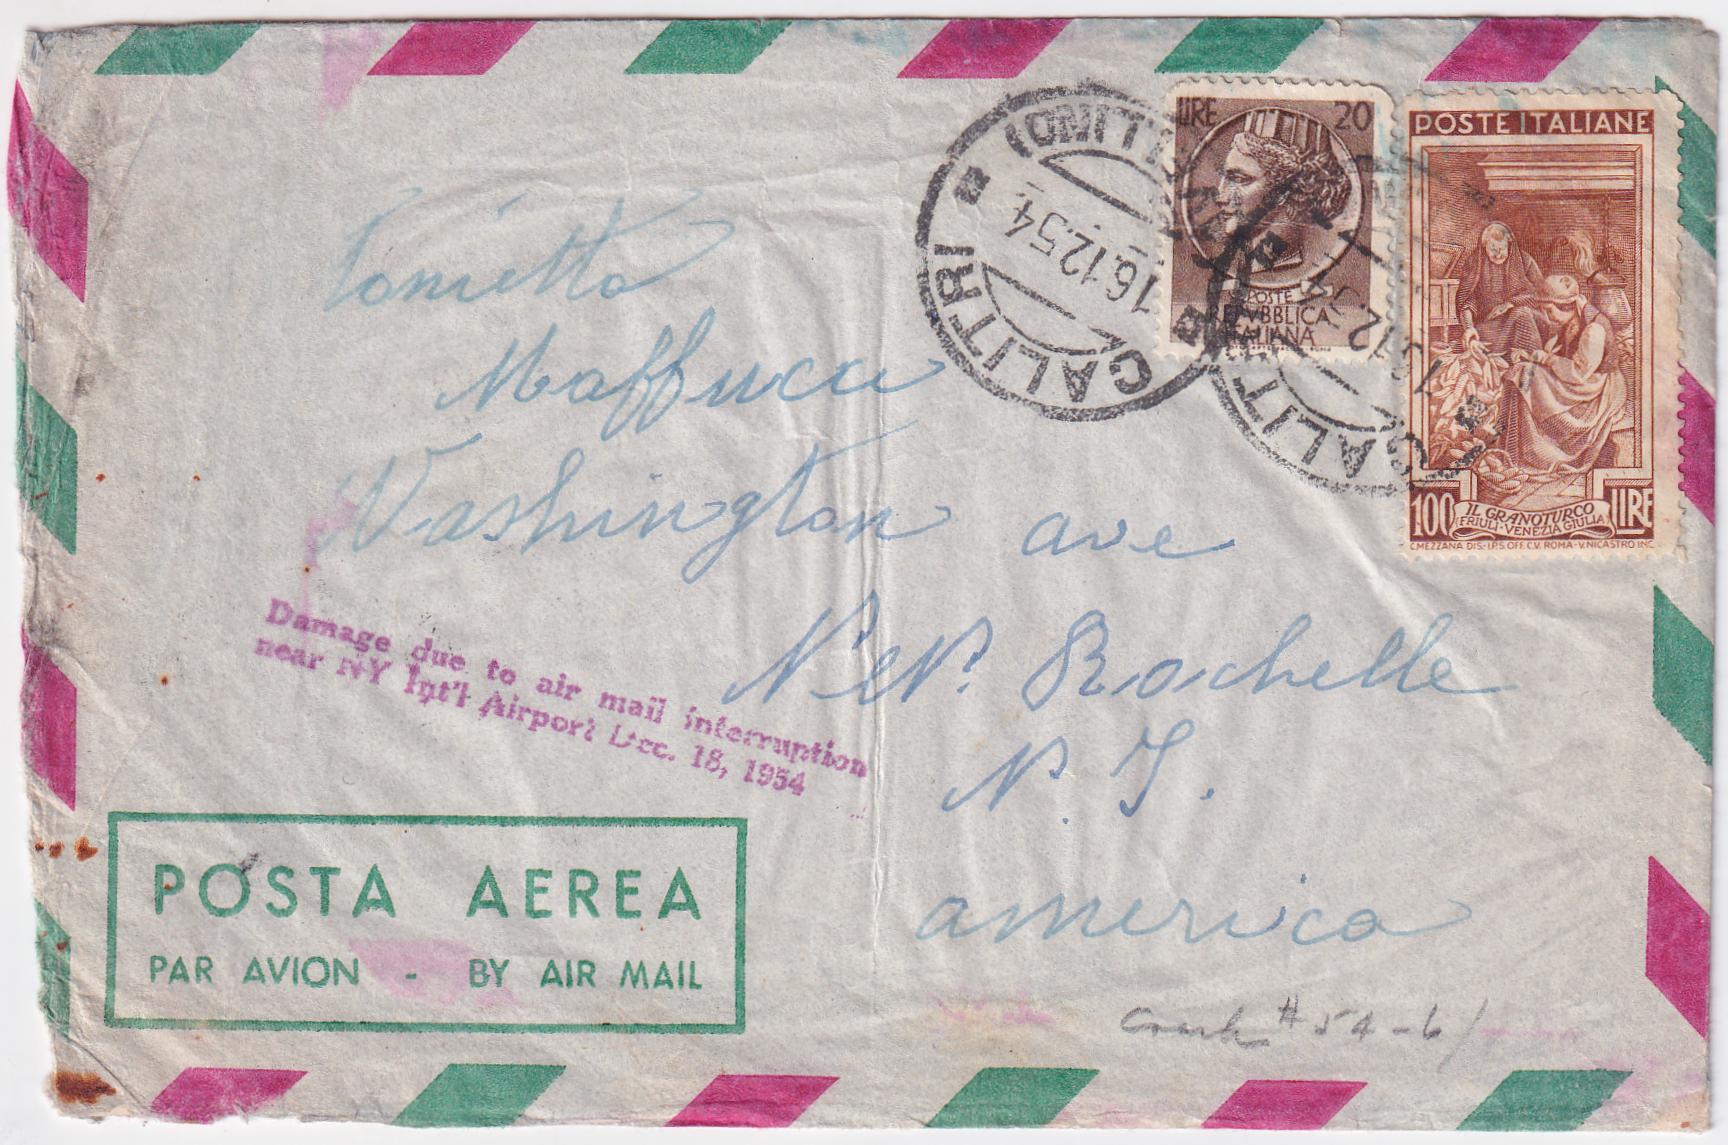 LIRE 20
POSTE
REPVBBLICA
ITALIANA
POSTE ITALIANE
100 IL GRANOTURCO LIRE
(FRIULI-VENEZIA GIULIA)
C.MEZZANA DIS.-I.P.S. OFF. C.V. ROMA-V.NICASTRO INC.
CALITRI
16.12.54
CALITRI
Tonietta
Maffucci
Washington ave
New. Rochelle
N. Y.
america
Damage due to air mail interruption
near NY Int'l Airport Dec. 18, 1954
POSTA AEREA
PAR AVION - BY AIR MAIL
Crash # 54-6/